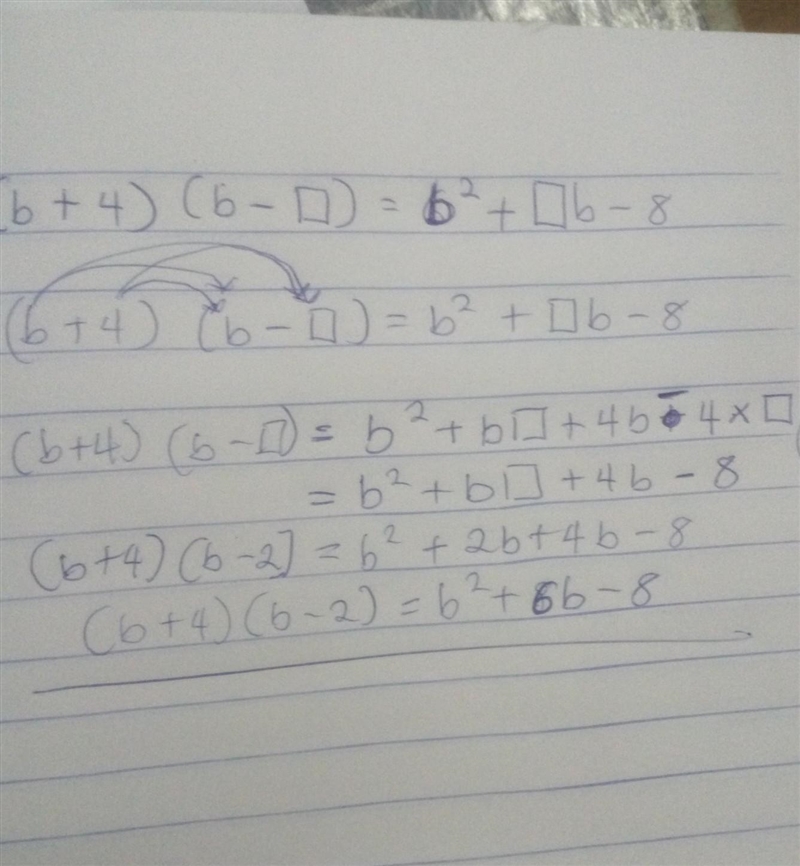 (b + 4) (b - □) = b² + □b - 8
(b + 4) (b - □) = b² + □b - 8
(b+4) (b - □) = b² + b□ + 4b - 4 × □
= b² + b□ + 4b - 8
(b+4) (b-2] = b² + 2b + 4b - 8
(b+4) (b-2) = b² + 6b - 8